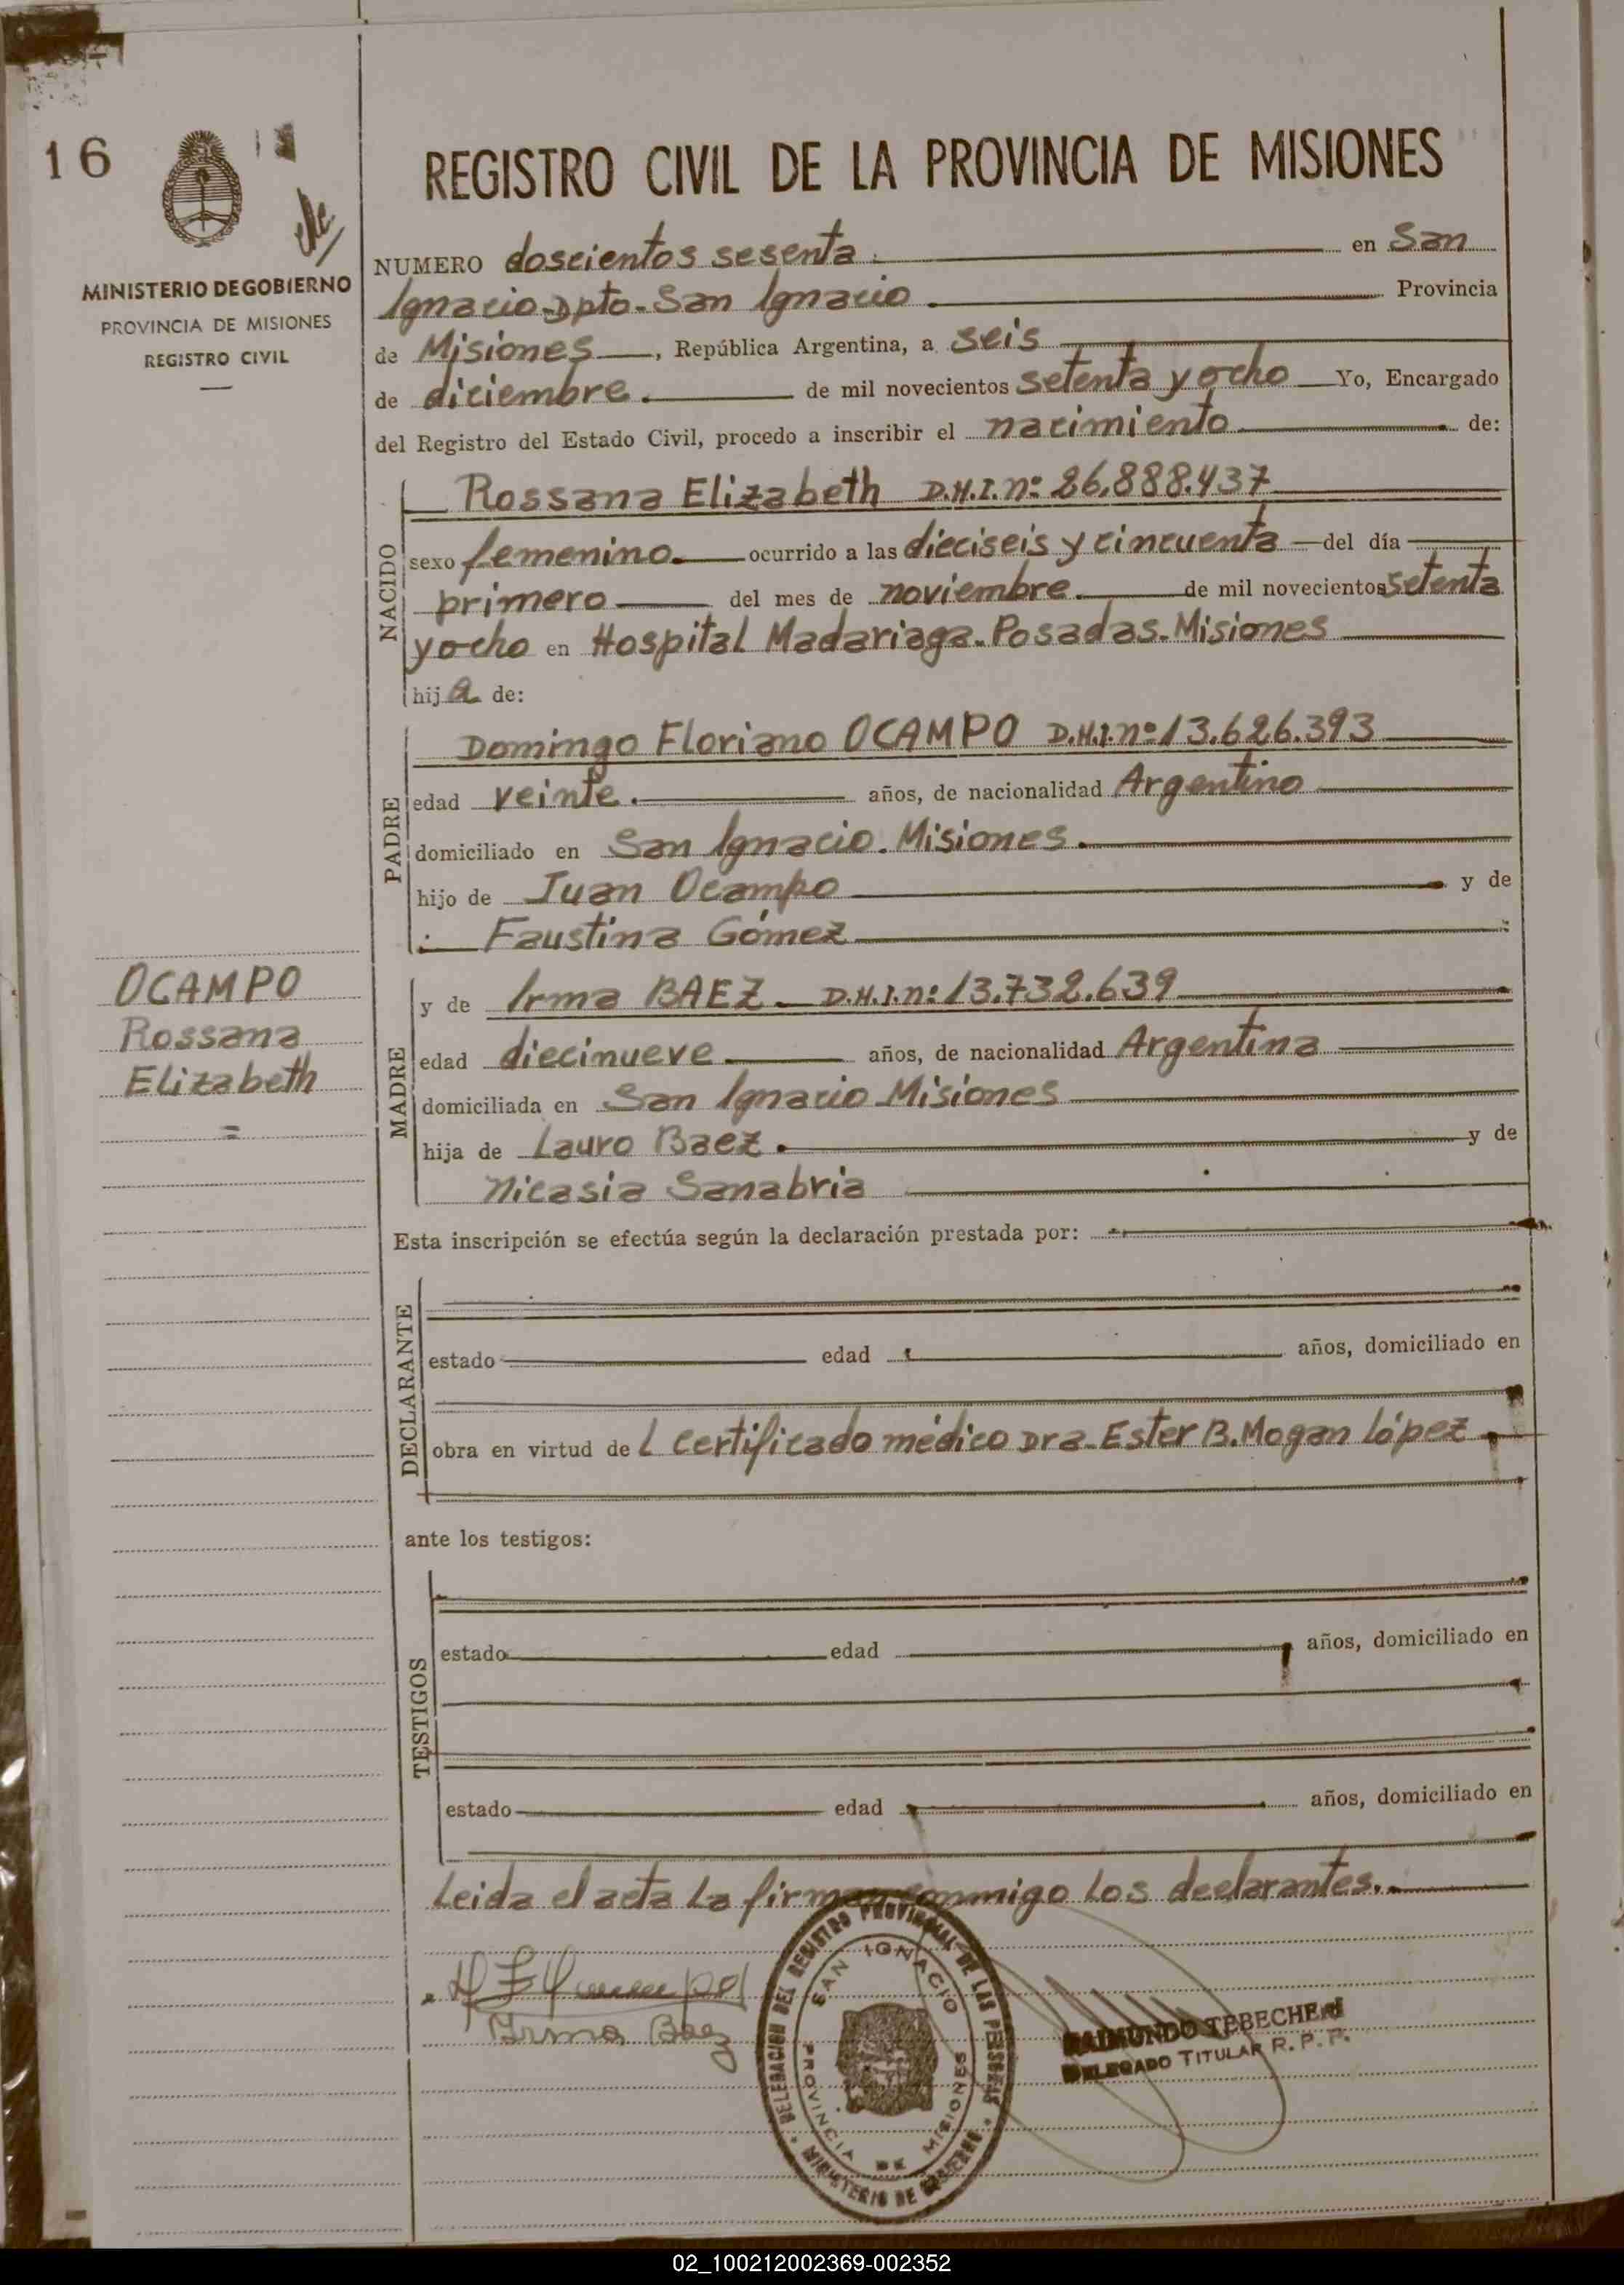 16
MINISTERIO DE GOBIERNO
PROVINCIA DE MISIONES
REGISTRO CIVIL
REGISTRO CIVIL DE LA PROVINCIA DE MISIONES
NUMERO doscientos sesenta. en San
Ignacio-Dpto-San Ignacio. Provincia
de Misiones, República Argentina, a seis
de diciembre. de mil novecientos setenta y ocho Yo, Encargado
del Registro del Estado Civil, procedo a inscribir el nacimiento. de:
NACIDO
Rossana Elizabeth D.N.I. nº 26.888.437
sexo femenino. ocurrido a las dieciseis y cincuenta del día
primero del mes de noviembre. de mil novecientos setenta
y ocho en Hospital Madariaga-Posadas-Misiones
hija de:
PADRE
Domingo Floriano OCAMPO D.N.I. nº 13.626.393
edad veinte. años, de nacionalidad Argentino
domiciliado en San Ignacio. Misiones.
hijo de Juan Ocampo y de
Faustina Gómez
OCAMPO
Rossana
Elizabeth
=
MADRE
y de Irma BAEZ - D.N.I. nº 13.732.639
edad diecinueve. años, de nacionalidad Argentina
domiciliada en San Ignacio Misiones
hija de Lauro Baez. y de
Nicasia Sanabria
Esta inscripción se efectúa según la declaración prestada por:
DECLARANTE
estado edad años, domiciliado en
obra en virtud del certificado médico Dra-Ester B. Mogan López
ante los testigos:
TESTIGOS
estado edad años, domiciliado en
estado edad años, domiciliado en
Leida el acta la firman conmigo los declarantes.
Irma Baez
DELEGACION DEL REGISTRO PROVINCIAL DE LAS PERSONAS
SAN IGNACIO
PROVINCIA DE MISIONES
MINISTERIO DE GOBIERNO
RAIMUNDO TEBECHERI
DELEGADO TITULAR R. P. P.
02_100212002369-002352